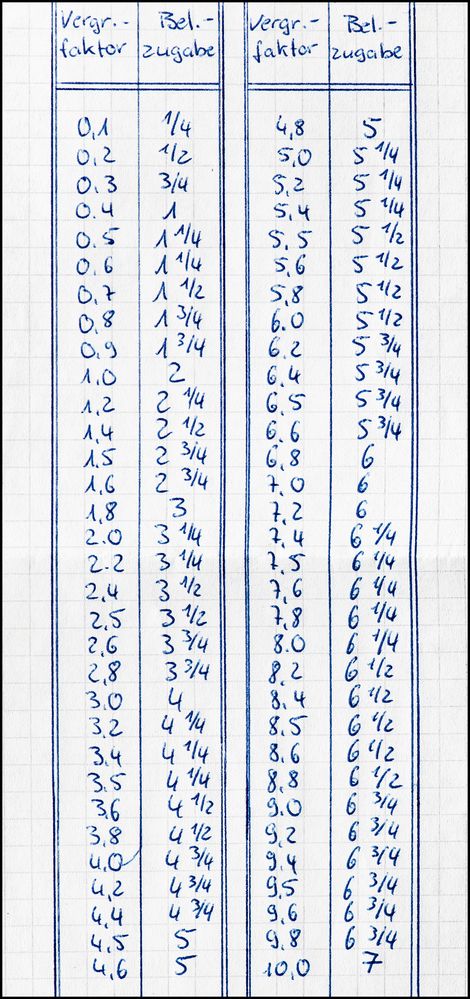 Vergr.- Bel.-
faktor zugabe
0,1 1/4
0,2 1/2
0.3 3/4
0.4 1
0.5 1 1/4
0,6 1 1/4
0,7 1 1/2
0,8 1 3/4
0,9 1 3/4
1.0 2
1,2 2 1/4
1,4 2 1/2
1.5 2 3/4
1,6 2 3/4
1,8 3
2.0 3 1/4
2.2 3 1/4
2,4 3 1/2
2,5 3 1/2
2,6 3 3/4
2,8 3 3/4
3.0 4
3,2 4 1/4
3,4 4 1/4
3,5 4 1/4
3,6 4 1/2
3,8 4 1/2
4,0 4 3/4
4,2 4 3/4
4,4 4 3/4
4,5 5
4,6 5
Vergr.- Bel.-
faktor zugabe
4,8 5
5,0 5 1/4
5,2 5 1/4
5,4 5 1/4
5,5 5 1/2
5,6 5 1/2
5,8 5 1/2
6.0 5 1/2
6.2 5 3/4
6,4 5 3/4
6,5 5 3/4
6,6 5 3/4
6,8 6
7,0 6
7,2 6
7,4 6 1/4
7,5 6 1/4
7,6 6 1/4
7,8 6 1/4
8.0 6 1/4
8,2 6 1/2
8,4 6 1/2
8,5 6 1/2
8,6 6 1/2
8,8 6 1/2
9.0 6 3/4
9,2 6 3/4
9,4 6 3/4
9,5 6 3/4
9,6 6 3/4
9,8 6 3/4
10,0 7